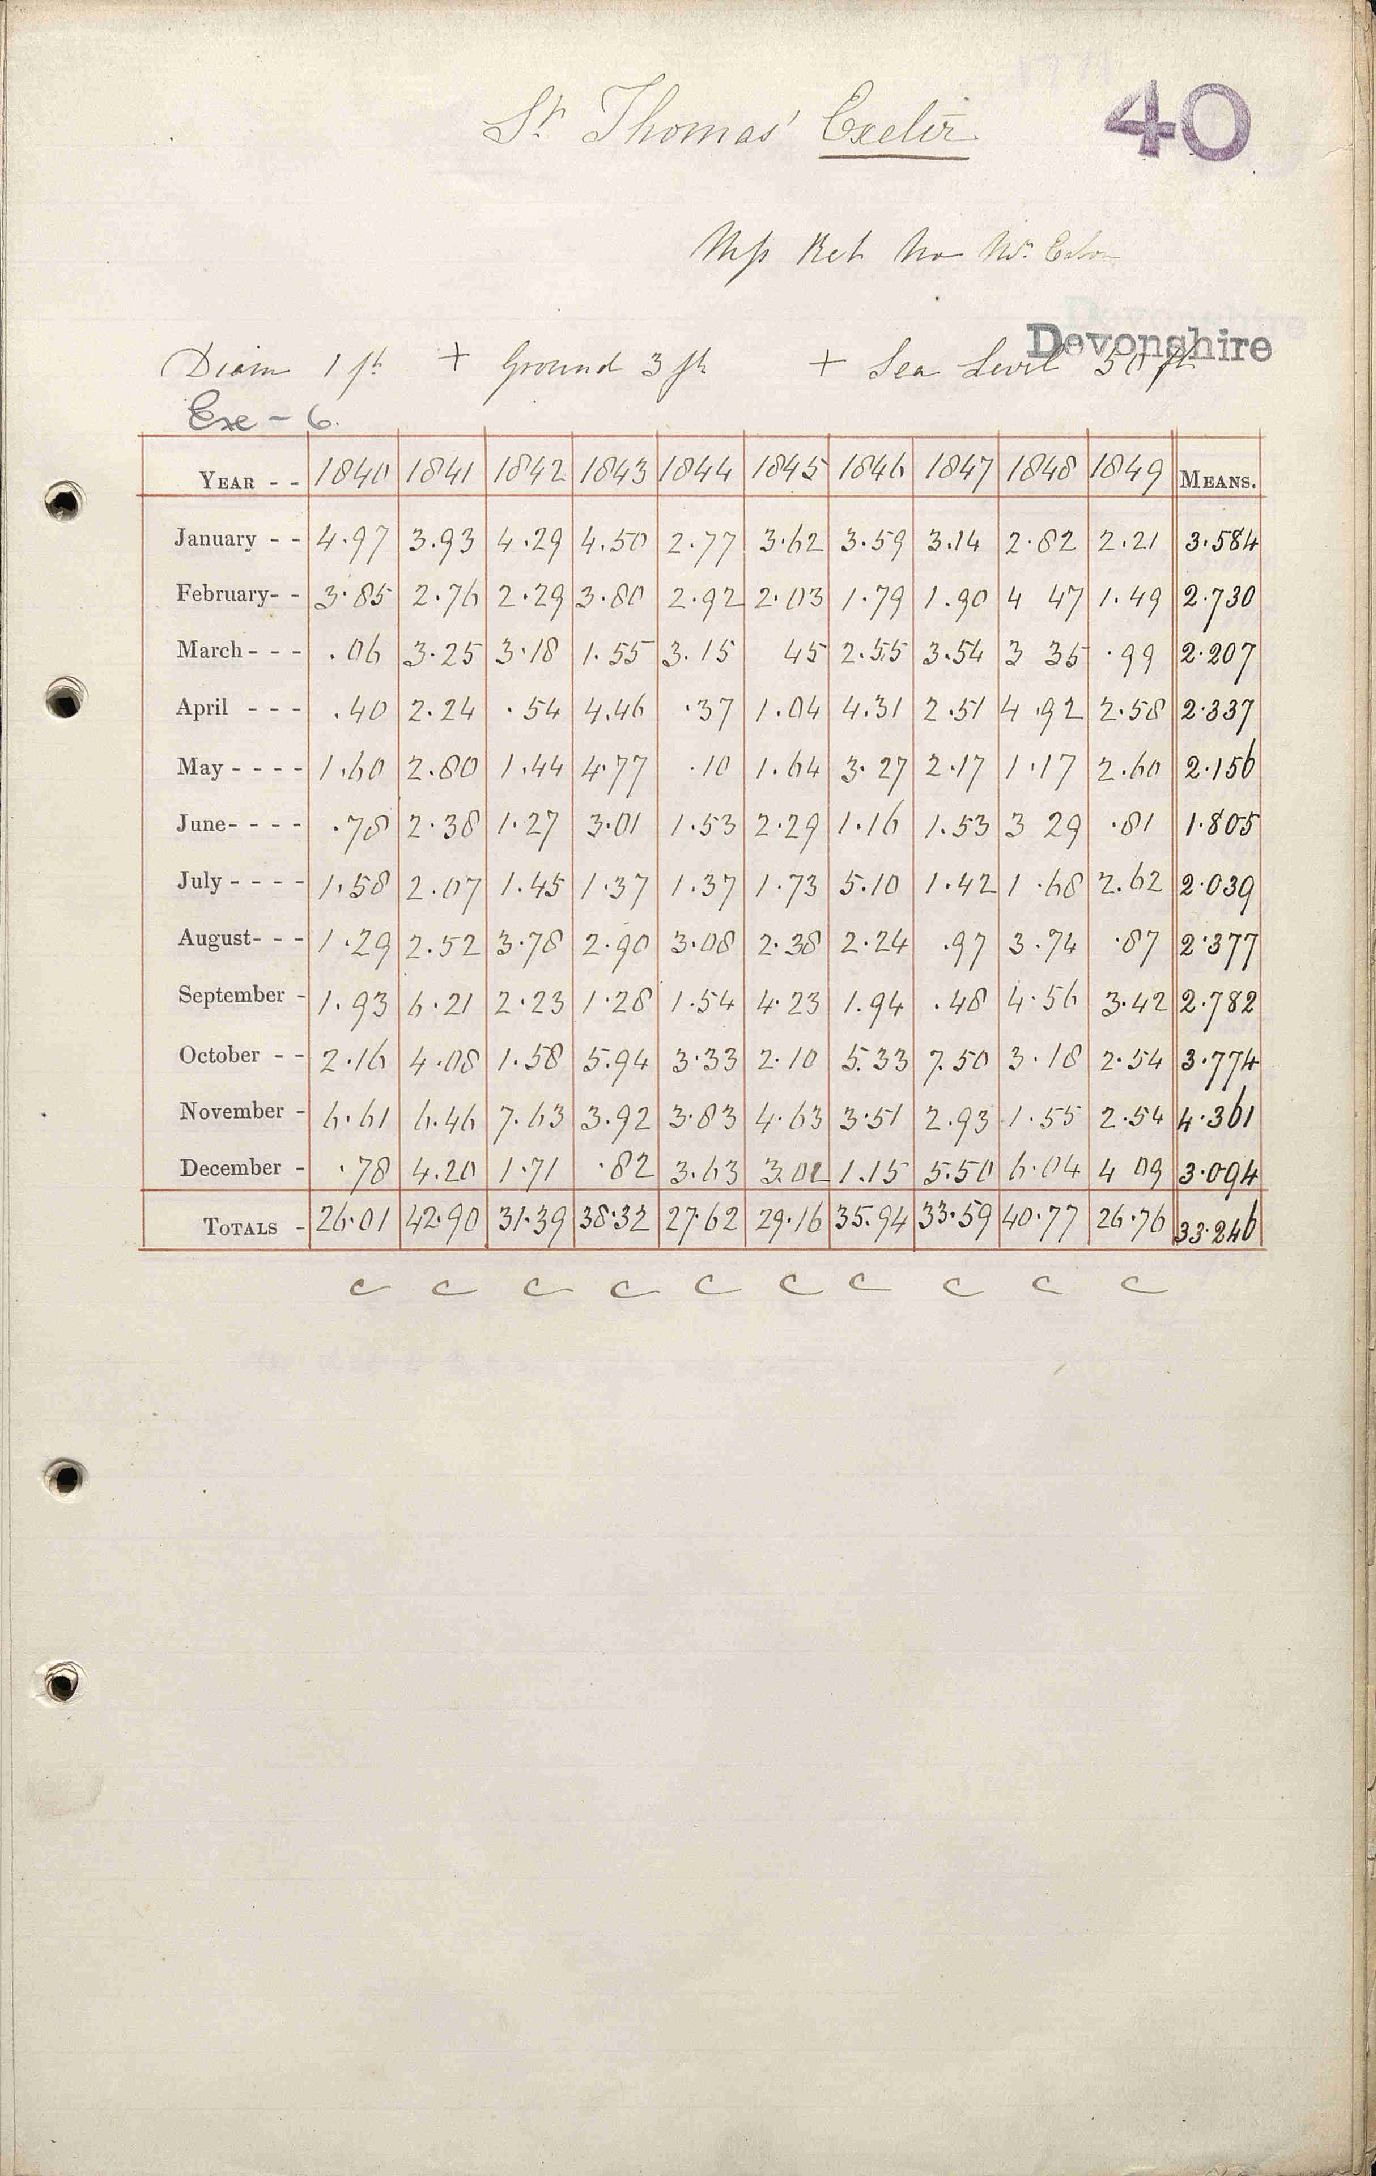 40
St Thomas' Exeter
Mss Ret
Devonshire
Diam 1 ft + Ground 3 ft + Sea Level 50 ft
Exe - 6.
YEAR - - 1840 1841 1842 1843 1844 1845 1846 1847 1848 1849 MEANS.
January - - 4.97 3.93 4.29 4.50 2.77 3.62 3.59 3.14 2.82 2.21 3.584
February- - 3.85 2.76 2.29 3.80 2.92 2.03 1.79 1.90 4 47 1.49 2.730
March - - - .06 3.25 3.18 1.55 3.15 45 2.55 3.54 3 35 .99 2.207
April - - - .40 2.24 .54 4.46 .37 1.04 4.31 2.51 4.92 2.58 2.337
May - - - - 1.60 2.80 1.44 4.77 .10 1.64 3.27 2.17 1.17 2.60 2.156
June- - - - .78 2.38 1.27 3.01 1.53 2.29 1.16 1.53 3 29 .81 1.805
July - - - - 1.58 2.07 1.45 1.37 1.37 1.73 5.10 1.42 1.68 2.62 2.039
August- - - 1.29 2.52 3.78 2.90 3.08 2.38 2.24 .97 3.74 .87 2.377
September - 1.93 6.21 2.23 1.28 1.54 4.23 1.94 .48 4.56 3.42 2.782
October - - 2.16 4.08 1.58 5.94 3.33 2.10 5.33 7.50 3.18 2.54 3.774
November - 6.61 6.46 7.63 3.92 3.83 4.63 3.51 2.93 1.55 2.54 4.361
December - .78 4.20 1.71 .82 3.63 3.01 1.15 5.50 6.04 4 09 3.094
TOTALS - 26.01 42.90 31.39 38.32 27.62 29.16 35.94 33.59 40.77 26.76 33.246
c c c c c c c c c c